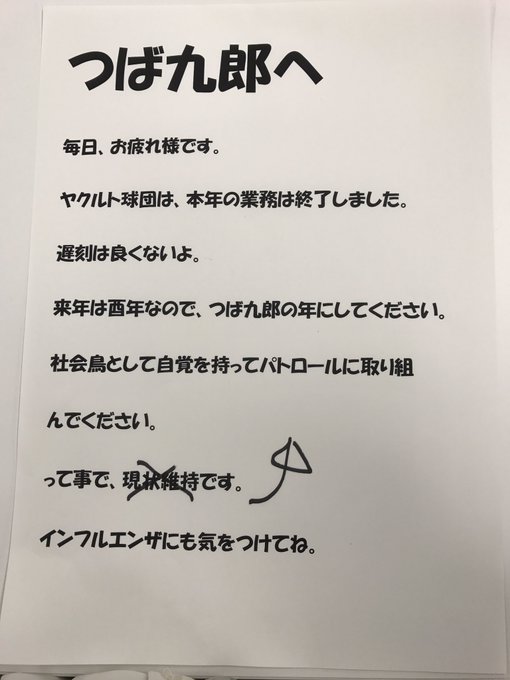 つば九郎へ
毎日、お疲れ様です。
ヤクルト球団は、本年の業務は終了しました。
遅刻は良くないよ。
来年は酉年なので、つば九郎の年にしてください。
社会鳥として自覚を持ってパトロールに取り組
んでください。
って事で、現状維持です。
インフルエンザにも気をつけてね。